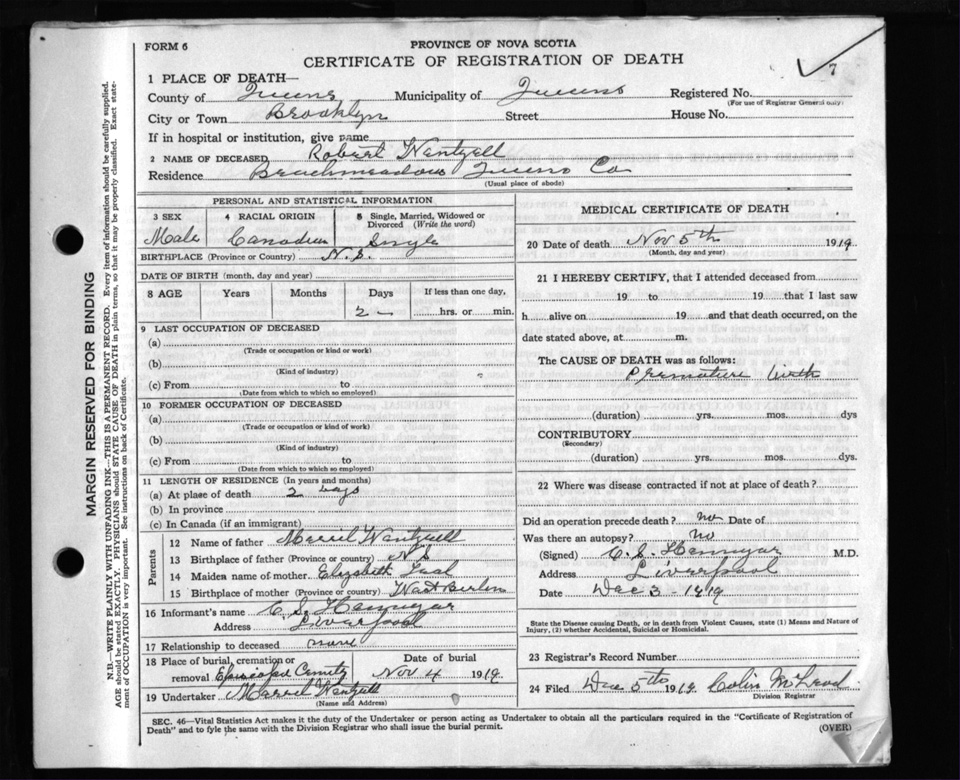 FORM 6
PROVINCE OF NOVA SCOTIA
CERTIFICATE OF REGISTRATION OF DEATH
7
1 PLACE OF DEATH—
County of Queens Municipality of Queens Registered No.
(For use of Registrar General only)
City or Town Brooklyn Street House No.
If in hospital or institution, give name
2 NAME OF DECEASED Robert Wentzell
Residence Beachmeadows Queens Co
(Usual place of abode)
PERSONAL AND STATISTICAL INFORMATION
3 SEX 4 RACIAL ORIGIN 5 Single, Married, Widowed or Divorced (Write the word)
Male Canadian Single
BIRTHPLACE (Province or Country) N.S.
DATE OF BIRTH (month, day and year)
8 AGE Years Months Days If less than one day,
2 — hrs. or min.
9 LAST OCCUPATION OF DECEASED
(a)
(Trade or occupation or kind or work)
(b)
(Kind of industry)
(c) From to
(Date from which to which so employed)
10 FORMER OCCUPATION OF DECEASED
(a)
(Trade or occupation or kind of work)
(b)
(Kind of industry)
(c) From to
(Date from which to which so employed)
11 LENGTH OF RESIDENCE (In years and months)
(a) At plase of death 2 days
(b) In province
(c) In Canada (if an immigrant)
Parents
12 Name of father Merril Wentzell
13 Birthplace of father (Province or country) N.S.
14 Maiden name of mother Elizabeth
15 Birthplace of mother (Province or country) West Berlin
16 Informant's name C. S. Hennigar
Address Liverpool
17 Relationship to deceased none
18 Place of burial, cremation or removal Episcopal Cemity Date of burial Nov 4 1919
19 Undertaker Merril Wentzell
(Name and Address)
MEDICAL CERTIFICATE OF DEATH
20 Date of death Nov 5th 1919
(Month, day and year)
21 I HEREBY CERTIFY, that I attended deceased from
19 to 19 that I last saw
h alive on 19 and that death occurred, on the
date stated above, at m.
The CAUSE OF DEATH was as follows:
Premature birth
(duration) yrs. mos. dys
CONTRIBUTORY
(Secondary)
(duration) yrs. mos. dys.
22 Where was disease contracted if not at place of death?
Did an operation precede death? no Date of
Was there an autopsy? no
(Signed) C. S. Hennigar M.D.
Address Liverpool
Date Dec 3 - 1919
State the Disease causing Death, or in death from Violent Causes, state (1) Means and Nature of
Injury, (2) whether Accidental, Suicidal or Homicidal.
23 Registrar's Record Number
24 Filed Dec 5th 1919 Colin McLeod
Division Registrar
SEC. 46—Vital Statistics Act makes it the duty of the Undertaker or person acting as Undertaker to obtain all the particulars required in the "Certificate of Registration of
Death" and to fyle the same with the Division Registrar who shall issue the burial permit.
(OVER)
MARGIN RESERVED FOR BINDING
N.B.—WRITE PLAINLY WITH UNFADING INK—THIS IS A PERMANENT RECORD. Every item of information should be carefully supplied.
AGE should be stated EXACTLY. PHYSICIANS should STATE CAUSE OF DEATH in plain terms, so that it may be properly classified. Exact statement of OCCUPATION is very important. See instructions on back of Certificate.